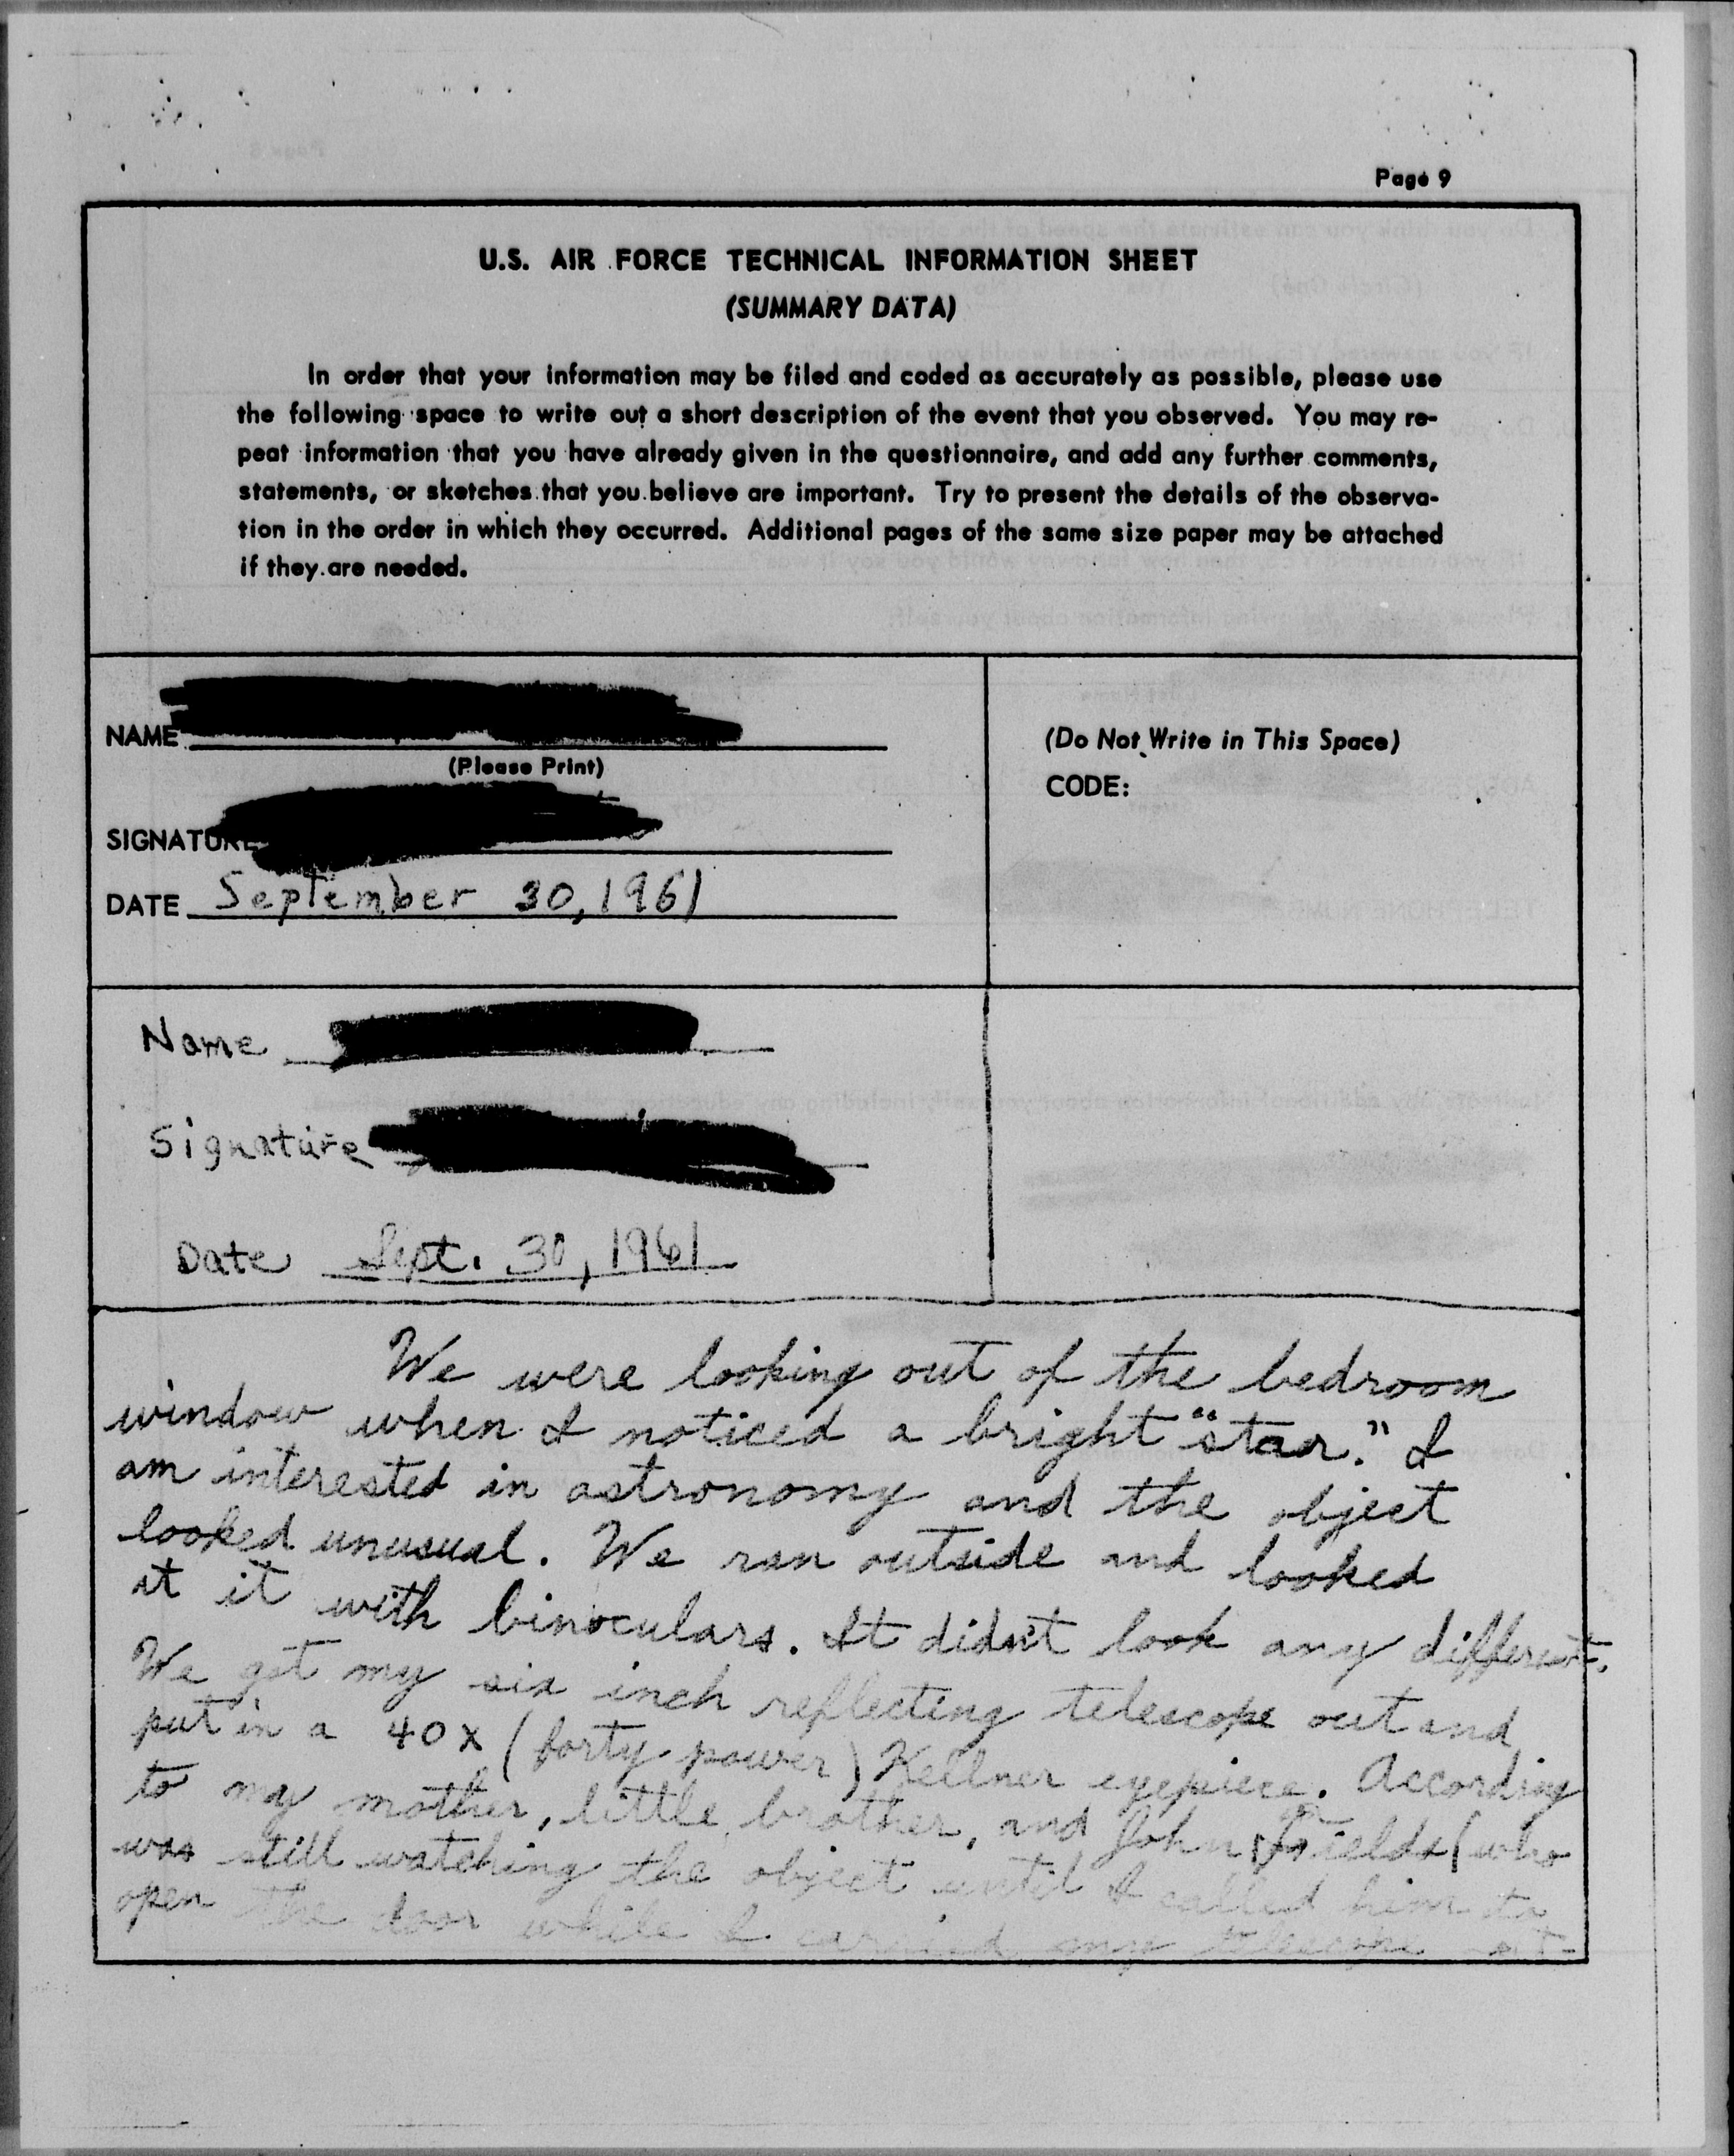 Page 9
U.S. AIR FORCE TECHNICAL INFORMATION SHEET
(SUMMARY DATA)
In order that your information may be filed and coded as accurately as possible, please use
the following space to write out a short description of the event that you observed. You may re-
peat information that you have already given in the questionnaire, and add any further comments,
statements, or sketches that you believe are important. Try to present the details of the observa-
tion in the order in which they occurred. Additional pages of the same size paper may be attached
if they are needed.
NAME
(Please Print)
SIGNATURE
DATE September 30, 1961
(Do Not Write in This Space)
CODE:
Name
Signature
Date Sept. 30, 1961
We were looking out of the bedroom
window when I noticed a bright "star." I
am interested in astronomy and the object
looked unusual. We ran outside and looked
at it with binoculars. It didn't look any different.
We got my six inch reflecting telescope out and
put in a 40x (forty power) Kellner eyepiece. According
to my mother, little brother, and John Fields (who
was still watching the object until I called him to
open the door while I carried my telescope out-